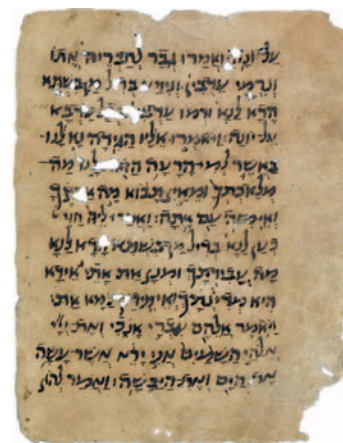 על יונה: ואמרו גבר לחבריה אתו
ונרמי עדבין ונידע בדיל מן בשתא
הדא לנא ורמו עדבין עדבא
על יונה: ויאמרו אליו הגידה נא לנו
באשר למי הרעה הזאת לנו מה
מלאכתך ומאין תבוא מה ארצך
ואי מזה עם אתה: ואמרו ליה חוי
כען לנא בדיל מן בשתא הדא לנא
מה עבידתך ומנן את אתי אידא
היא מדינתך ואי מדין עמא את:
ויאמר אלהם עברי אנכי ואת ייי
אלהי השמים אני ירא אשר עשה
את הים ואת היבשה: ואמר להון